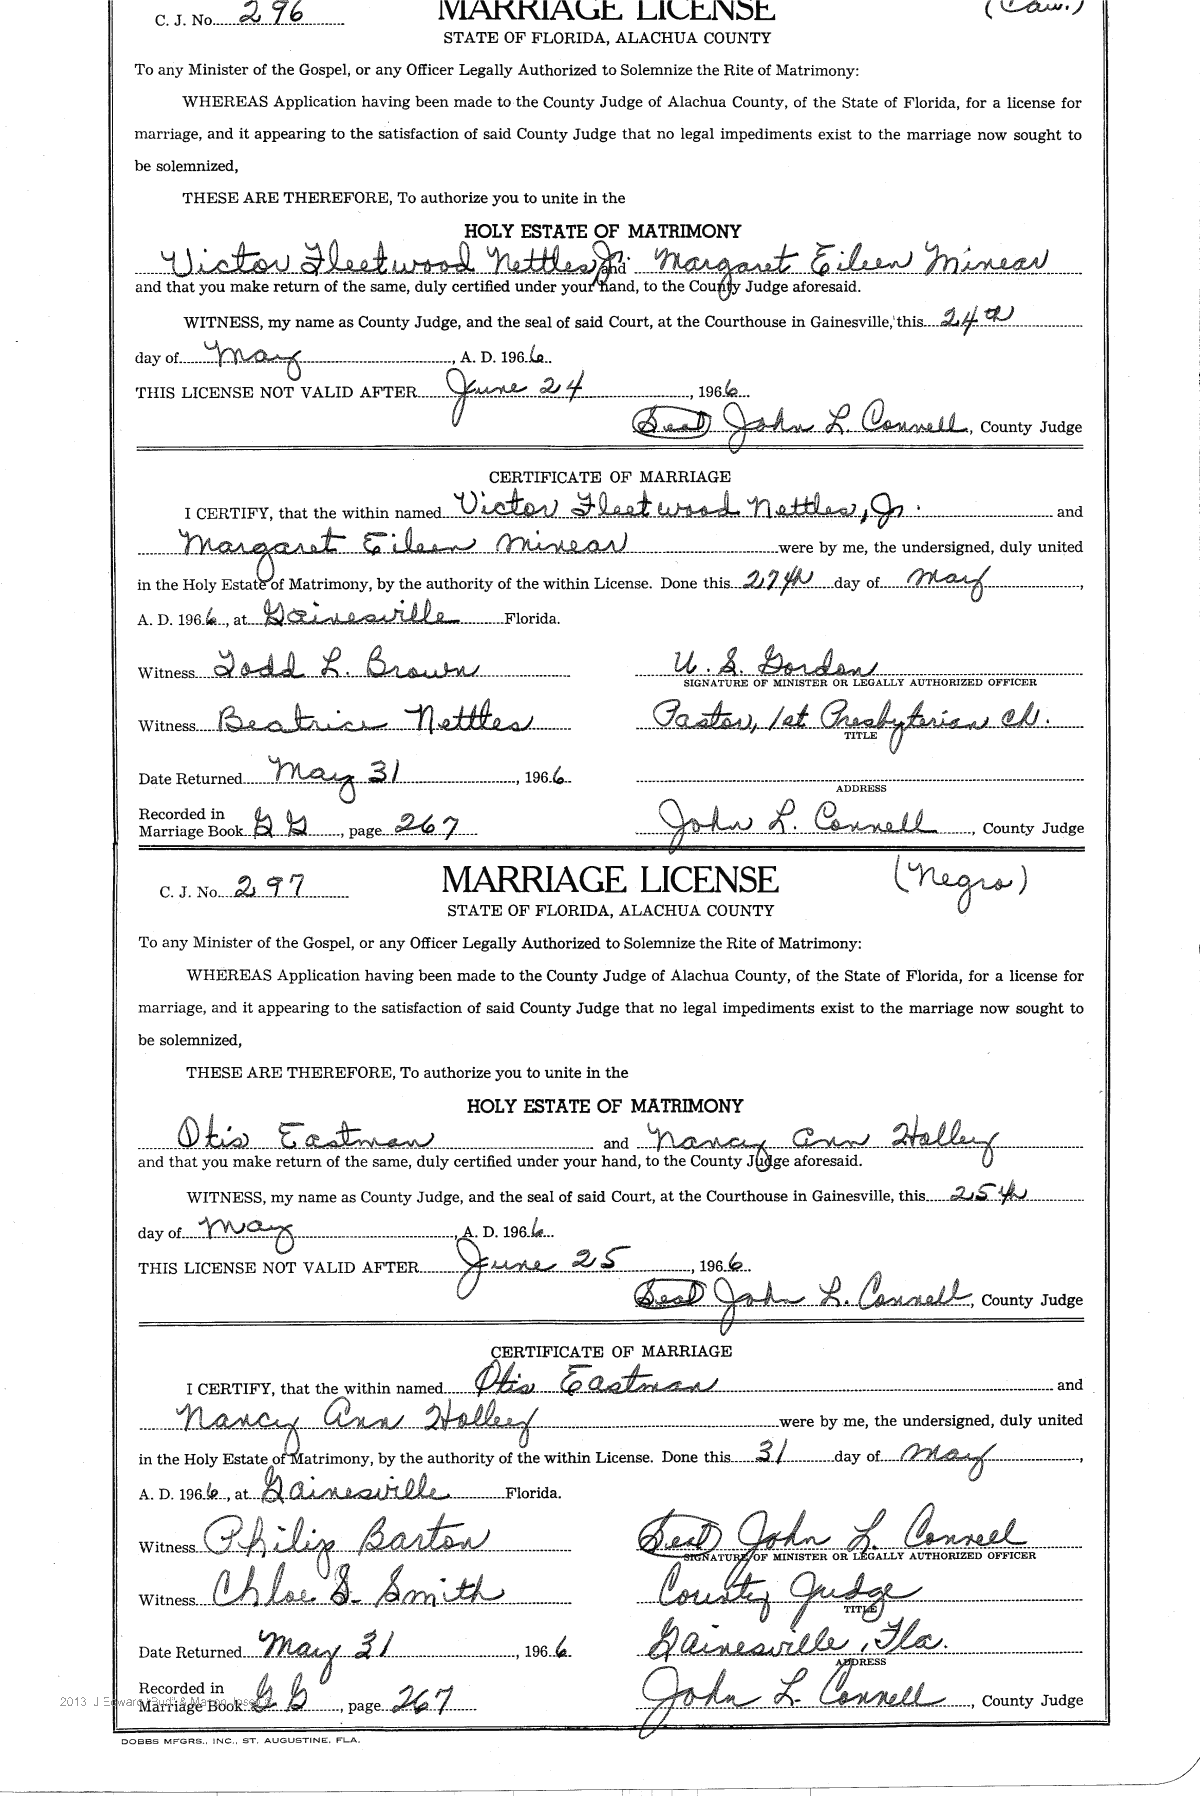 C. J. No. 296 MARRIAGE LICENSE (Cau.)
STATE OF FLORIDA, ALACHUA COUNTY
To any Minister of the Gospel, or any Officer Legally Authorized to Solemnize the Rite of Matrimony:
WHEREAS Application having been made to the County Judge of Alachua County, of the State of Florida, for a license for
marriage, and it appearing to the satisfaction of said County Judge that no legal impediments exist to the marriage now sought to
be solemnized,
THESE ARE THEREFORE, To authorize you to unite in the
HOLY ESTATE OF MATRIMONY
Victor Fleetwood Nettles, Jr. and Margaret Eileen Minear
and that you make return of the same, duly certified under your hand, to the County Judge aforesaid.
WITNESS, my name as County Judge, and the seal of said Court, at the Courthouse in Gainesville, this 24th
day of May, A. D. 1966.
THIS LICENSE NOT VALID AFTER June 24, 1966.
(Seal) John L. Connell, County Judge
CERTIFICATE OF MARRIAGE
I CERTIFY, that the within named Victor Fleetwood Nettles, Jr. and
Margaret Eileen Minear were by me, the undersigned, duly united
in the Holy Estate of Matrimony, by the authority of the within License. Done this 27th day of May,
A. D. 1966, at Gainesville Florida.
Witness Todd L. Brown U. S. Gordon
SIGNATURE OF MINISTER OR LEGALLY AUTHORIZED OFFICER
Witness Beatrice Nettles Pastor, 1st Presbyterian Ch.
TITLE
Date Returned May 31, 1966.
ADDRESS
Recorded in
Marriage Book GG, page 267 John L. Connell, County Judge
C. J. No. 297 MARRIAGE LICENSE (Negro)
STATE OF FLORIDA, ALACHUA COUNTY
To any Minister of the Gospel, or any Officer Legally Authorized to Solemnize the Rite of Matrimony:
WHEREAS Application having been made to the County Judge of Alachua County, of the State of Florida, for a license for
marriage, and it appearing to the satisfaction of said County Judge that no legal impediments exist to the marriage now sought to
be solemnized,
THESE ARE THEREFORE, To authorize you to unite in the
HOLY ESTATE OF MATRIMONY
Otis Eastman and Nancy Ann Holley
and that you make return of the same, duly certified under your hand, to the County Judge aforesaid.
WITNESS, my name as County Judge, and the seal of said Court, at the Courthouse in Gainesville, this 25th
day of May, A. D. 1966.
THIS LICENSE NOT VALID AFTER June 25, 1966.
(Seal) John L. Connell, County Judge
CERTIFICATE OF MARRIAGE
I CERTIFY, that the within named Otis Eastman and
Nancy Ann Holley were by me, the undersigned, duly united
in the Holy Estate of Matrimony, by the authority of the within License. Done this 31 day of May,
A. D. 1966, at Gainesville Florida.
Witness Philip Barton (Seal) John L. Connell
SIGNATURE OF MINISTER OR LEGALLY AUTHORIZED OFFICER
Witness Chloe S. Smith County Judge
TITLE
Date Returned May 31, 1966. Gainesville, Fla.
ADDRESS
Recorded in
Marriage Book GG, page 267 John L. Connell, County Judge
2013 J Edward "Bud" &
DOBBS MFGRS., INC., ST. AUGUSTINE, FLA.